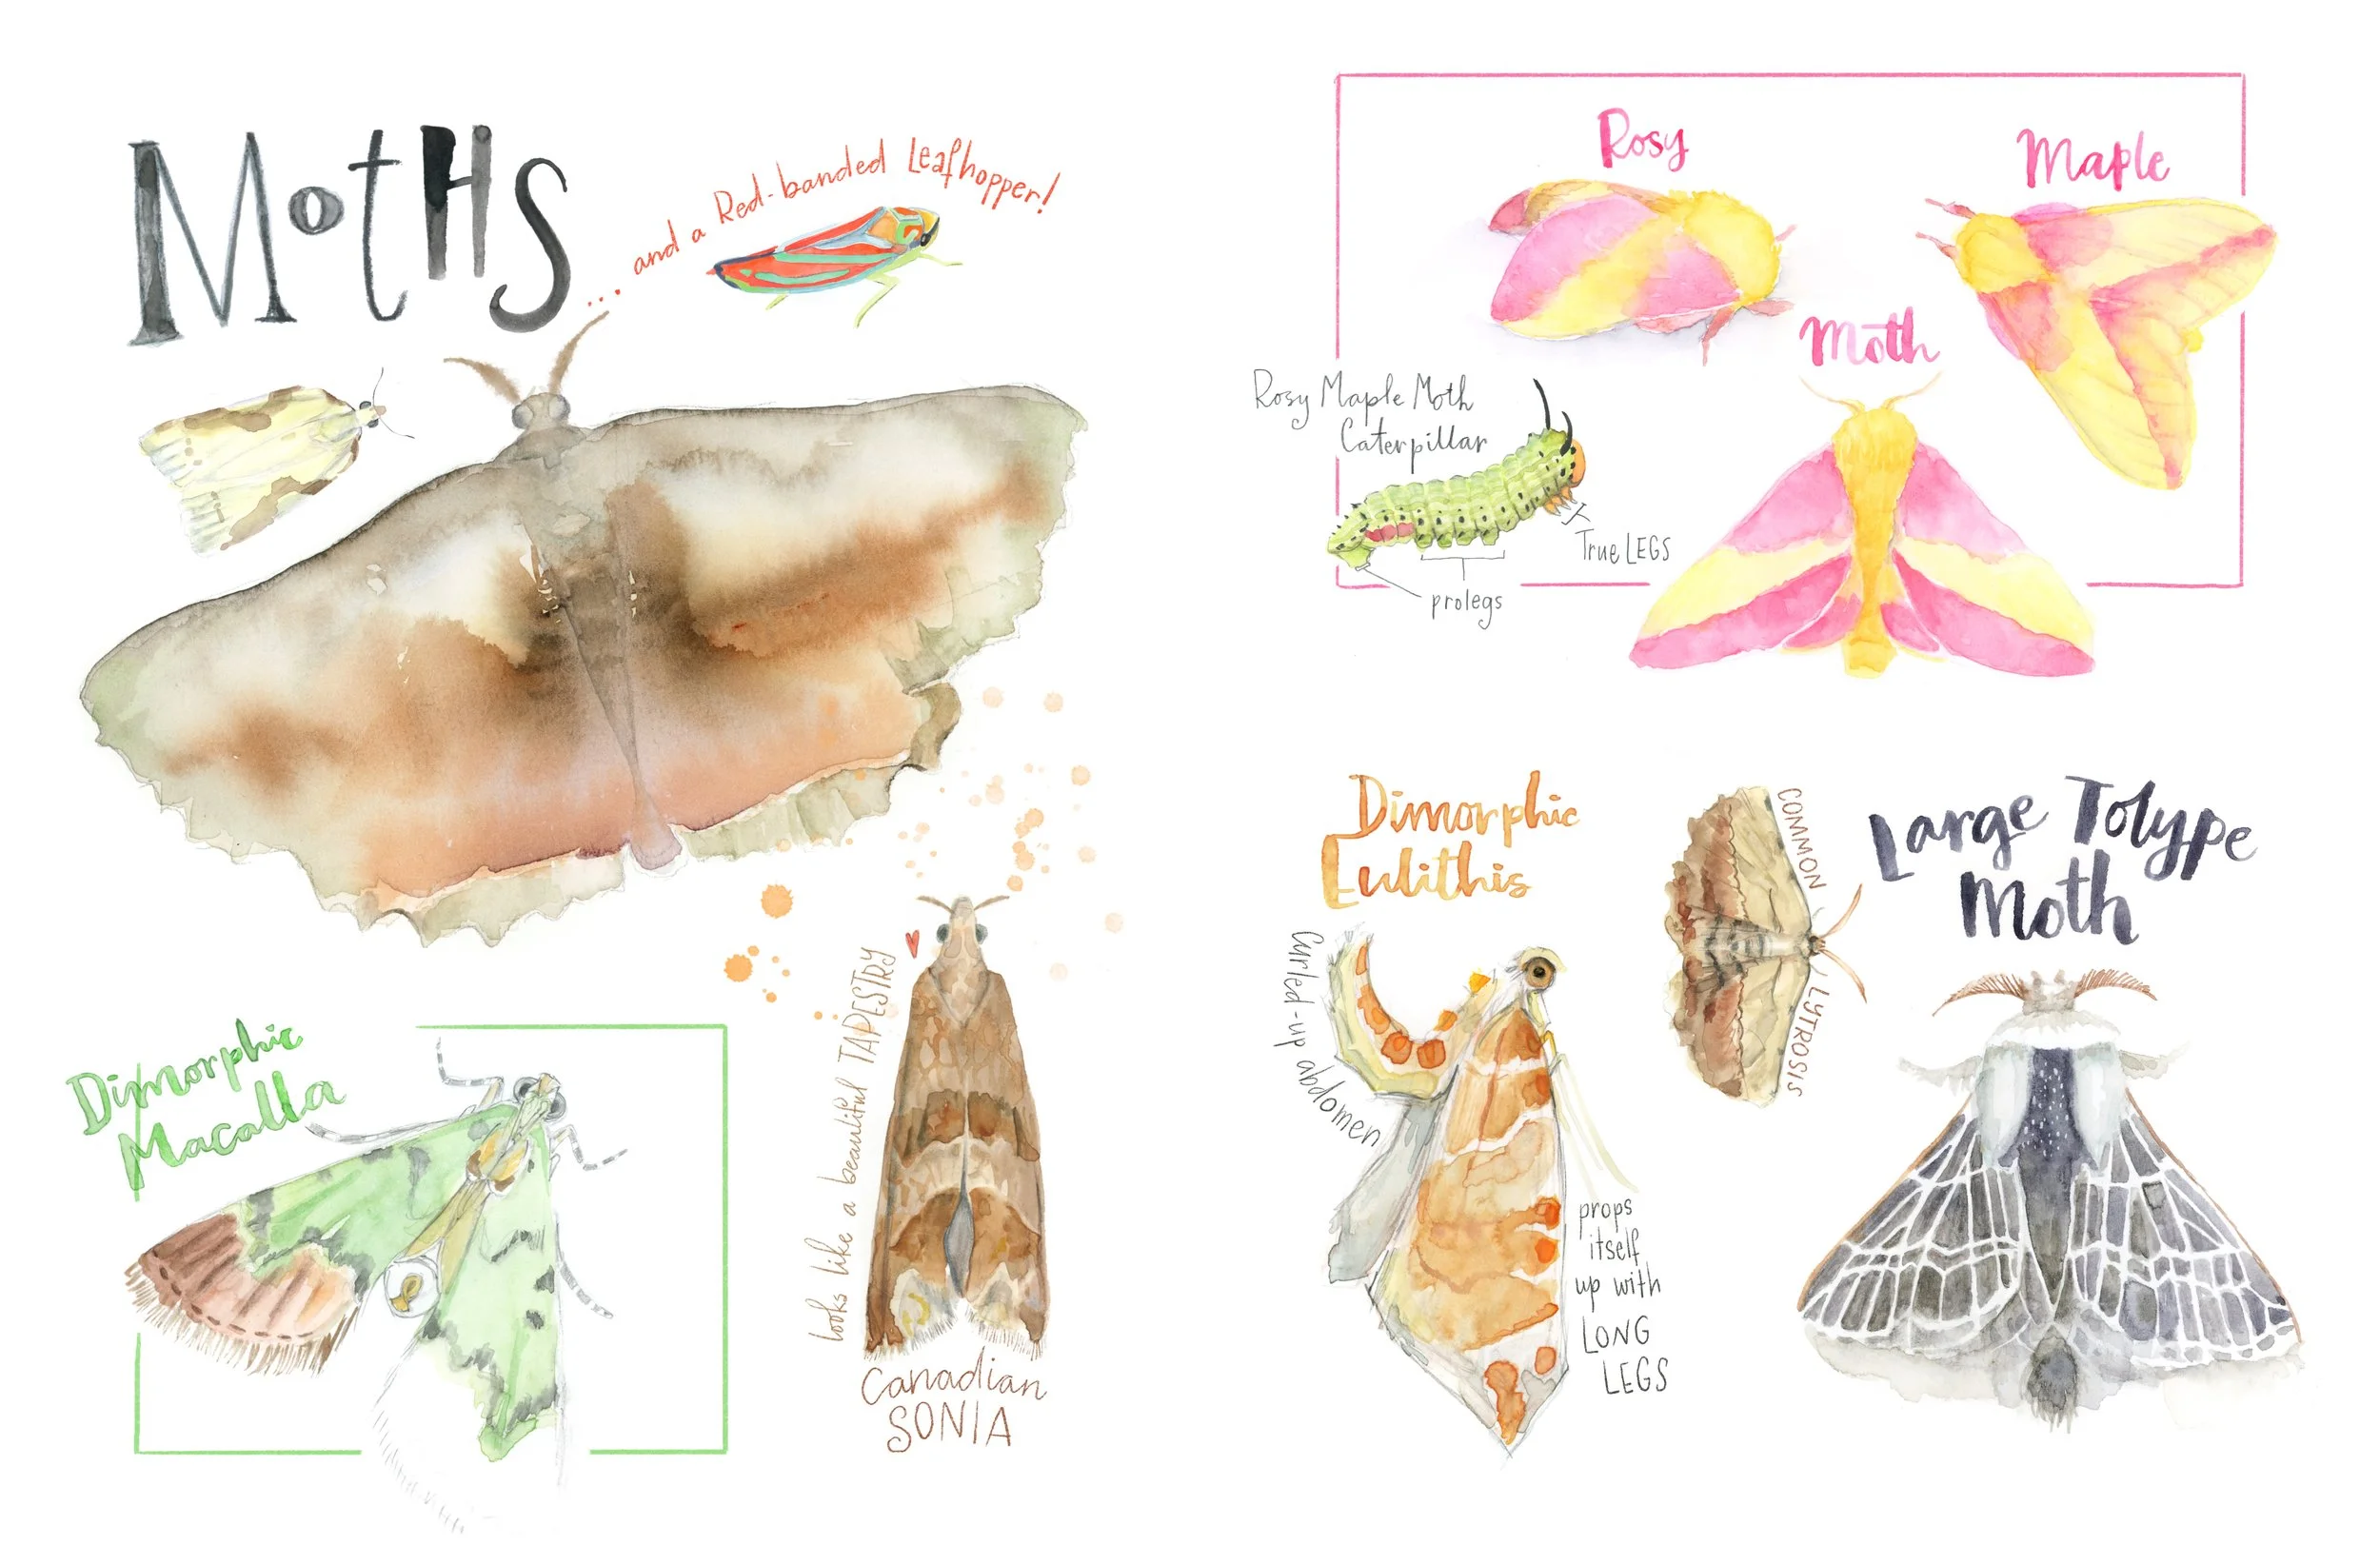 MotHs
... and a Red-banded Leafhopper!
Dimorphic
Macalla
looks like a beautiful TAPESTRY
Canadian
SONIA
Rosy
Maple
Moth
Rosy Maple Moth
Caterpillar
True LEGS
prolegs
Dimorphic
Eulithis
Curled-up abdomen
props
itself
up with
LONG
LEGS
COMMON
LYTROSIS
Large Tolype
Moth